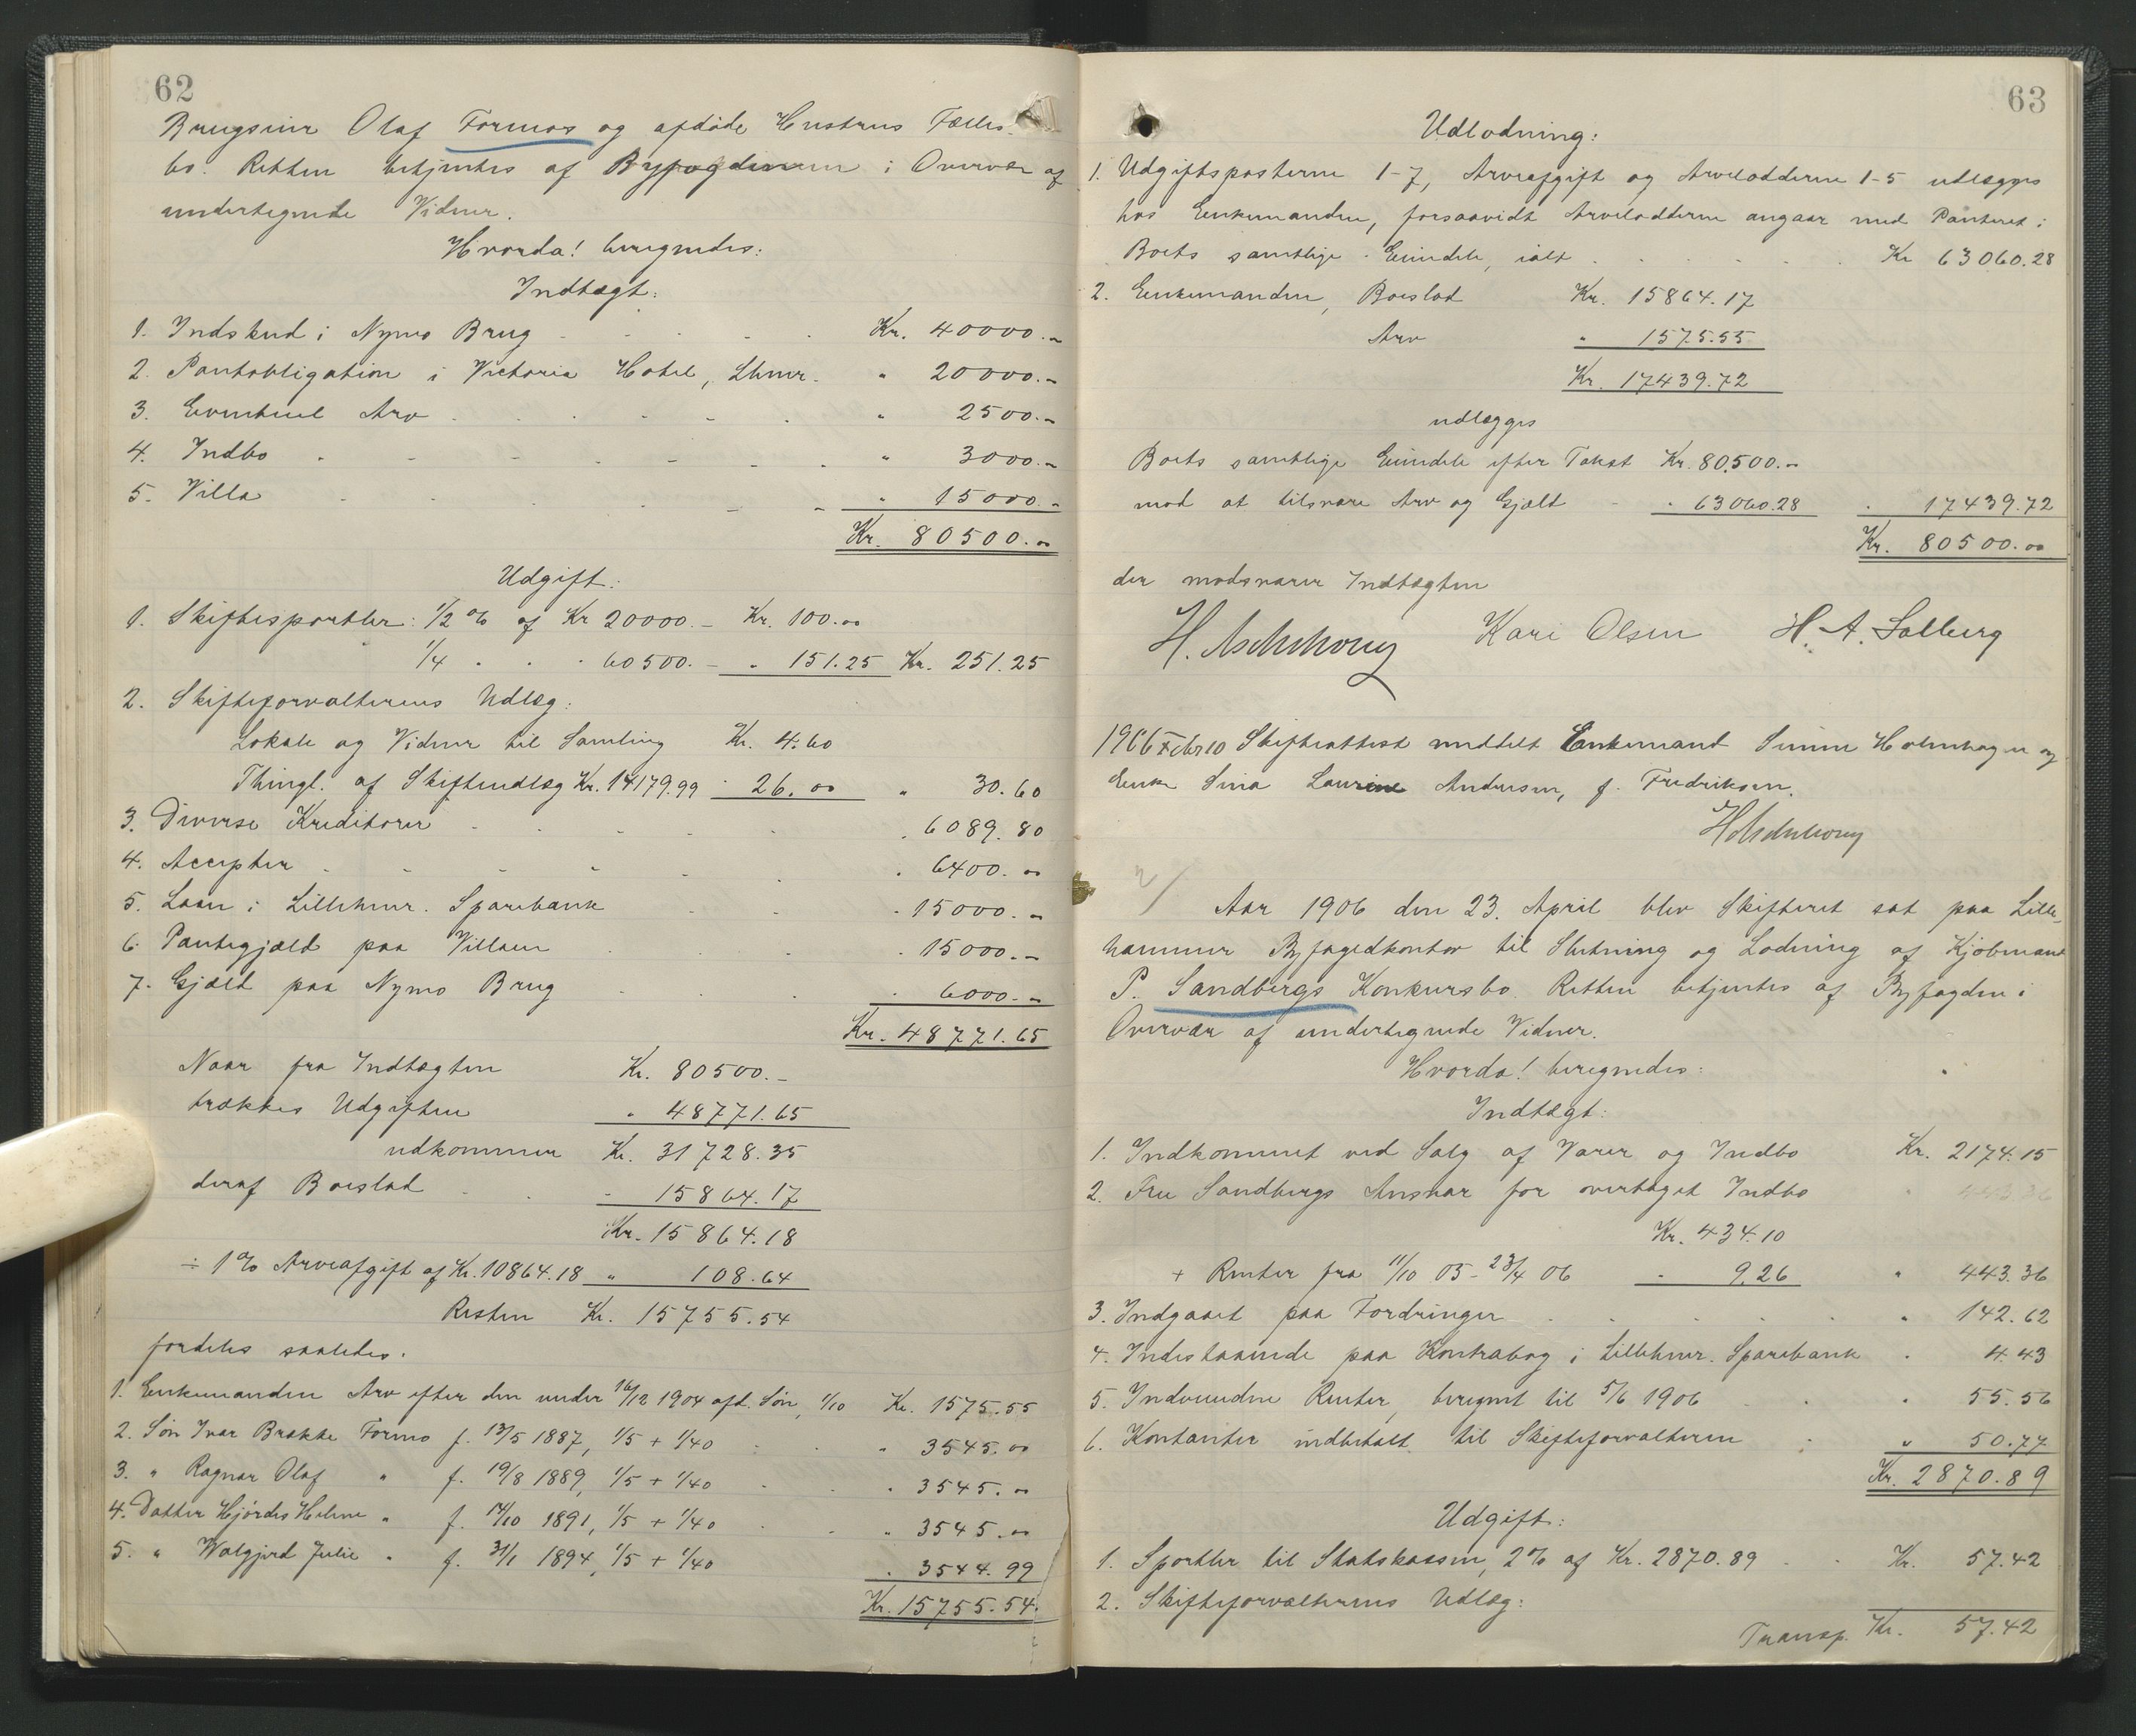 62
Brugseier Olaf Formos og afdøde Hustrus Fælles-
bo. Retten betjentes af Byfogden i Overvær af
undertegnede Vidner.
Hvorda! beregnedes:
Indtægt:
1. Indskud i Nymo Brug Kr. 40000.-
2. Pantobligation i Victoria Hotel, Lhmr. " 20000.-
3. Eventuel Arv " 2500.-
4. Indbo " 3000.-
5. Villa " 15000.-
Kr. 80500.00
Udgift:
1. Skiftesportler: 1/2 % af Kr 20000.- Kr. 100.00
1/4 " " " 60500.- " 151.25 Kr. 251.25
2. Skifteforvalterens Udlæg:
Lokale og Vidner til Samling Kr. 4.60
Thingl. af Skifteudlæg Kr. 14179.99 " 26.00 " 30.60
3. Diverse Kreditorer " 6089.80
4. Accepter " 6400.00
5. Laan i Lillehmr. Sparebank " 15000.-
6. Pantegjæld paa Villaen " 15000.-
7. Gjæld paa Nymo Brug " 6000.-
Kr. 48771.65
Naar fra Indtægten Kr. 80500.-
trækkes Udgiften " 48771.65
udkommer Kr. 31728.35
deraf Boeslod " 15864.17
Kr. 15864.18
÷ 1% Arveafgift af Kr. 10864.18 " 108.64
Resten Kr. 15755.54
fordeles saaledes.
1. Enkemanden Arv efter den under 16/12 1904 afd. Søn, 1/10 Kr. 1575.55
2. Søn Ivar Brække Formo f. 13/5 1887, 1/5 + 1/40 " 3545.00
3. " Ragnar Olaf " f. 19/8 1889, 1/5 + 1/40 " 3545.00
4. Datter Hjørdis Helene " f. 14/10 1891, 1/5 + 1/40 " 3545.00
5. " Valgjerd Julie " f. 31/1 1894, 1/5 + 1/40 " 3544.99
Kr. 15755.54.
63
Udlodning:
1. Udgiftsposterne 1-7, Arveafgift og Arvelodderne 1-5 udlægges
hos Enkemanden, forsaavidt Arvelodderne angaar med Panteret i
Boets samtlige Eiendele, ialt Kr 63060.28
2. Enkemanden, Boeslod Kr. 15864.17
Arv " 1575.55
Kr. 17439.72
udlægges
Boets samtlige Eiendele efter Takst Kr. 80,500.-
mod at tilsvare Arv og Gjæld " 63060.28 " 17439.72
Kr. 80500.00
der modsvarer Indtægten
H. Aschehoug Kari Olsen H. A. Solberg
1906 Febr 10 Skifteattest meddelt Enkemand Simen Holmhagen og
Enke Sina Laurine Andersen, f. Fredriksen.
H Aschehoug
Aar 1906 den 23. April blev Skifteret sat paa Lille-
hammer Byfogedkontor til Slutning og Lodning af Kjøbmand
P. Sandbergs Konkursbo. Retten betjentes af Byfogden i
Overvær af undertegnede Vidner.
Hvorda! beregnedes:
Indtægt:
1. Indkommet ved Salg af Varer og Indbo Kr. 2174.15
2. Fru Sandbergs Ansvar for overtaget Indbo
Kr. 434.10
+ Renter fra 11/10 05 - 23/4 06 " 9.26 " 443.36
3. Indgaaet paa Fordringer " 142.62
4. Indestaaende paa Kontrabog i Lillehmr. Sparebank " 4.43
5. Indvundne Renter, beregnet til 5/6 1906 " 55.56
6. Kontanter indbetalt til Skifteforvalteren " 50.77
Kr. 2870.89
Udgift:
1. Sportler til Statskassen, 2% af Kr. 2870.89 Kr. 57.42
2. Skifteforvalterens Udlæg:
Transp. Kr. 57.42